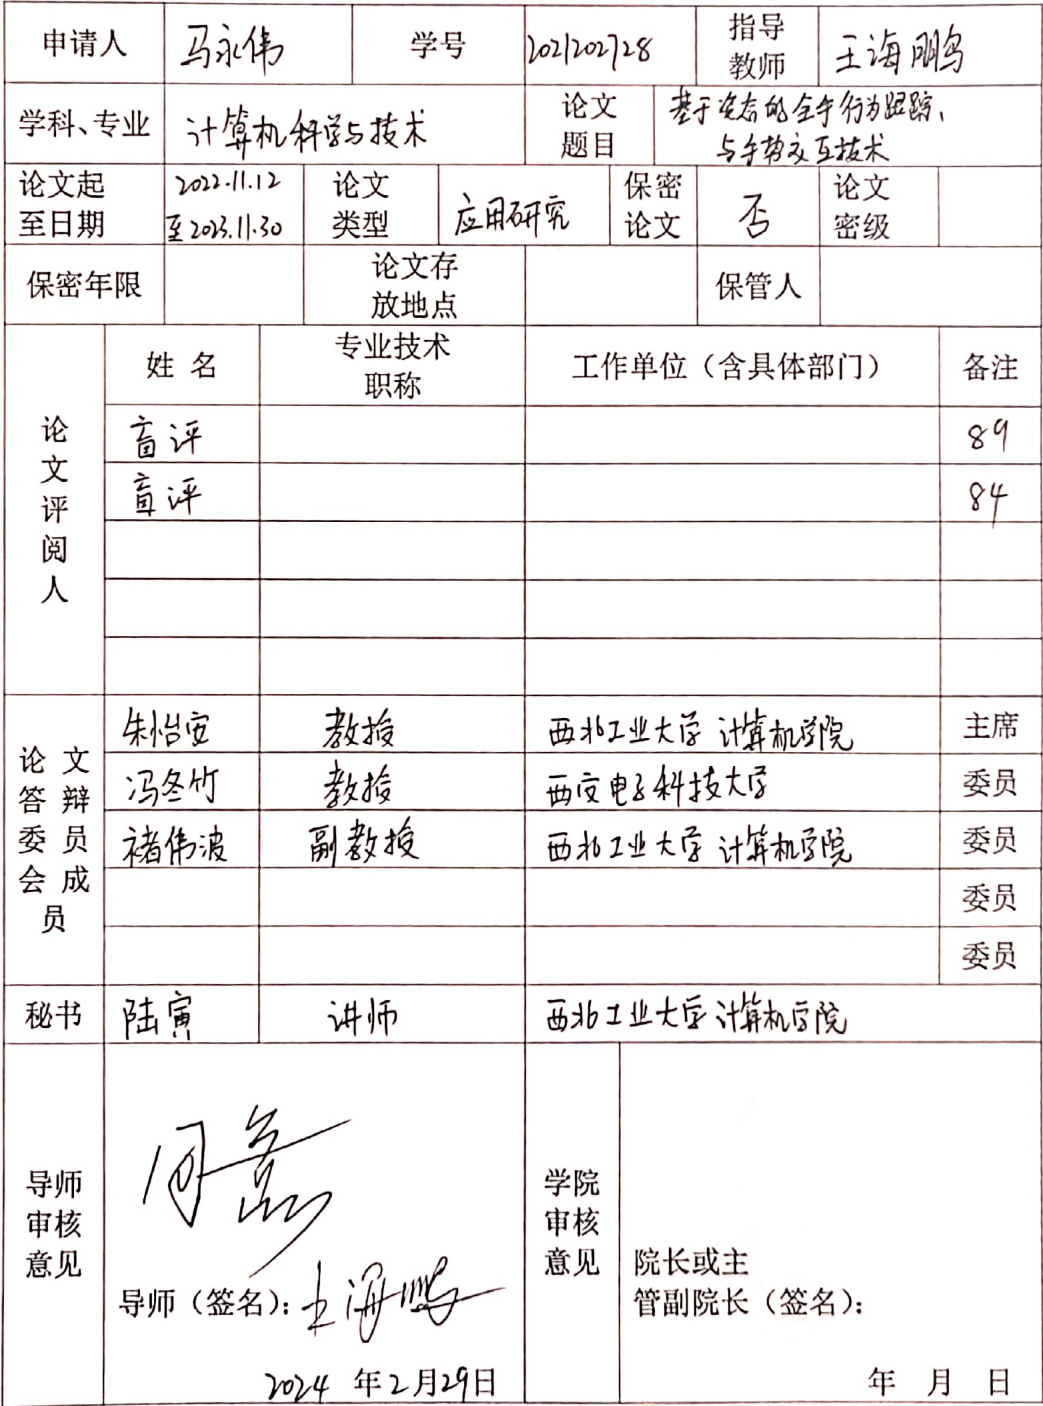 申请人 马永伟 学号 2021202728 指导教师 王海鹏
学科、专业 计算机科学与技术 论文题目 基于姿态的全手行为跟踪、
与手势交互技术
论文起至日期 2022.11.12
至2023.11.30 论文类型 应用研究 保密论文 否 论文密级
保密年限 论文存放地点 保管人
论文评阅人 姓名 专业技术职称 工作单位（含具体部门） 备注
盲评 89
盲评 84
论文答辩委员会成员
朱怡安 教授 西北工业大学 计算机学院 主席
冯冬竹 教授 西安电子科技大学 委员
褚伟波 副教授 西北工业大学 计算机学院 委员
委员
委员
秘书 陆寅 讲师 西北工业大学计算机学院
导师审核意见 同意
导师（签名）：王海鹏
2024 年2月29日
学院审核意见
院长或主
管副院长（签名）：
年 月 日